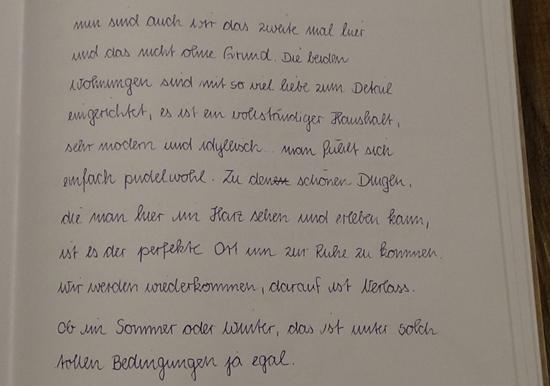 nun sind auch wir das zweite mal hier
und das nicht ohne Grund. Die beiden
Wohnungen sind mit so viel liebe zum Detail
eingerichtet, es ist ein vollständiger Haushalt,
sehr modern und idyllisch... man fühlt sich
einfach pudelwohl. Zu den schönen Dingen,
die man hier im Harz sehen und erleben kann,
ist es der perfekte Ort um zur Ruhe zu kommen.
Wir werden wiederkommen, darauf ist Verlass.
Ob im Sommer oder Winter, das ist unter solch
tollen Bedingungen ja egal.